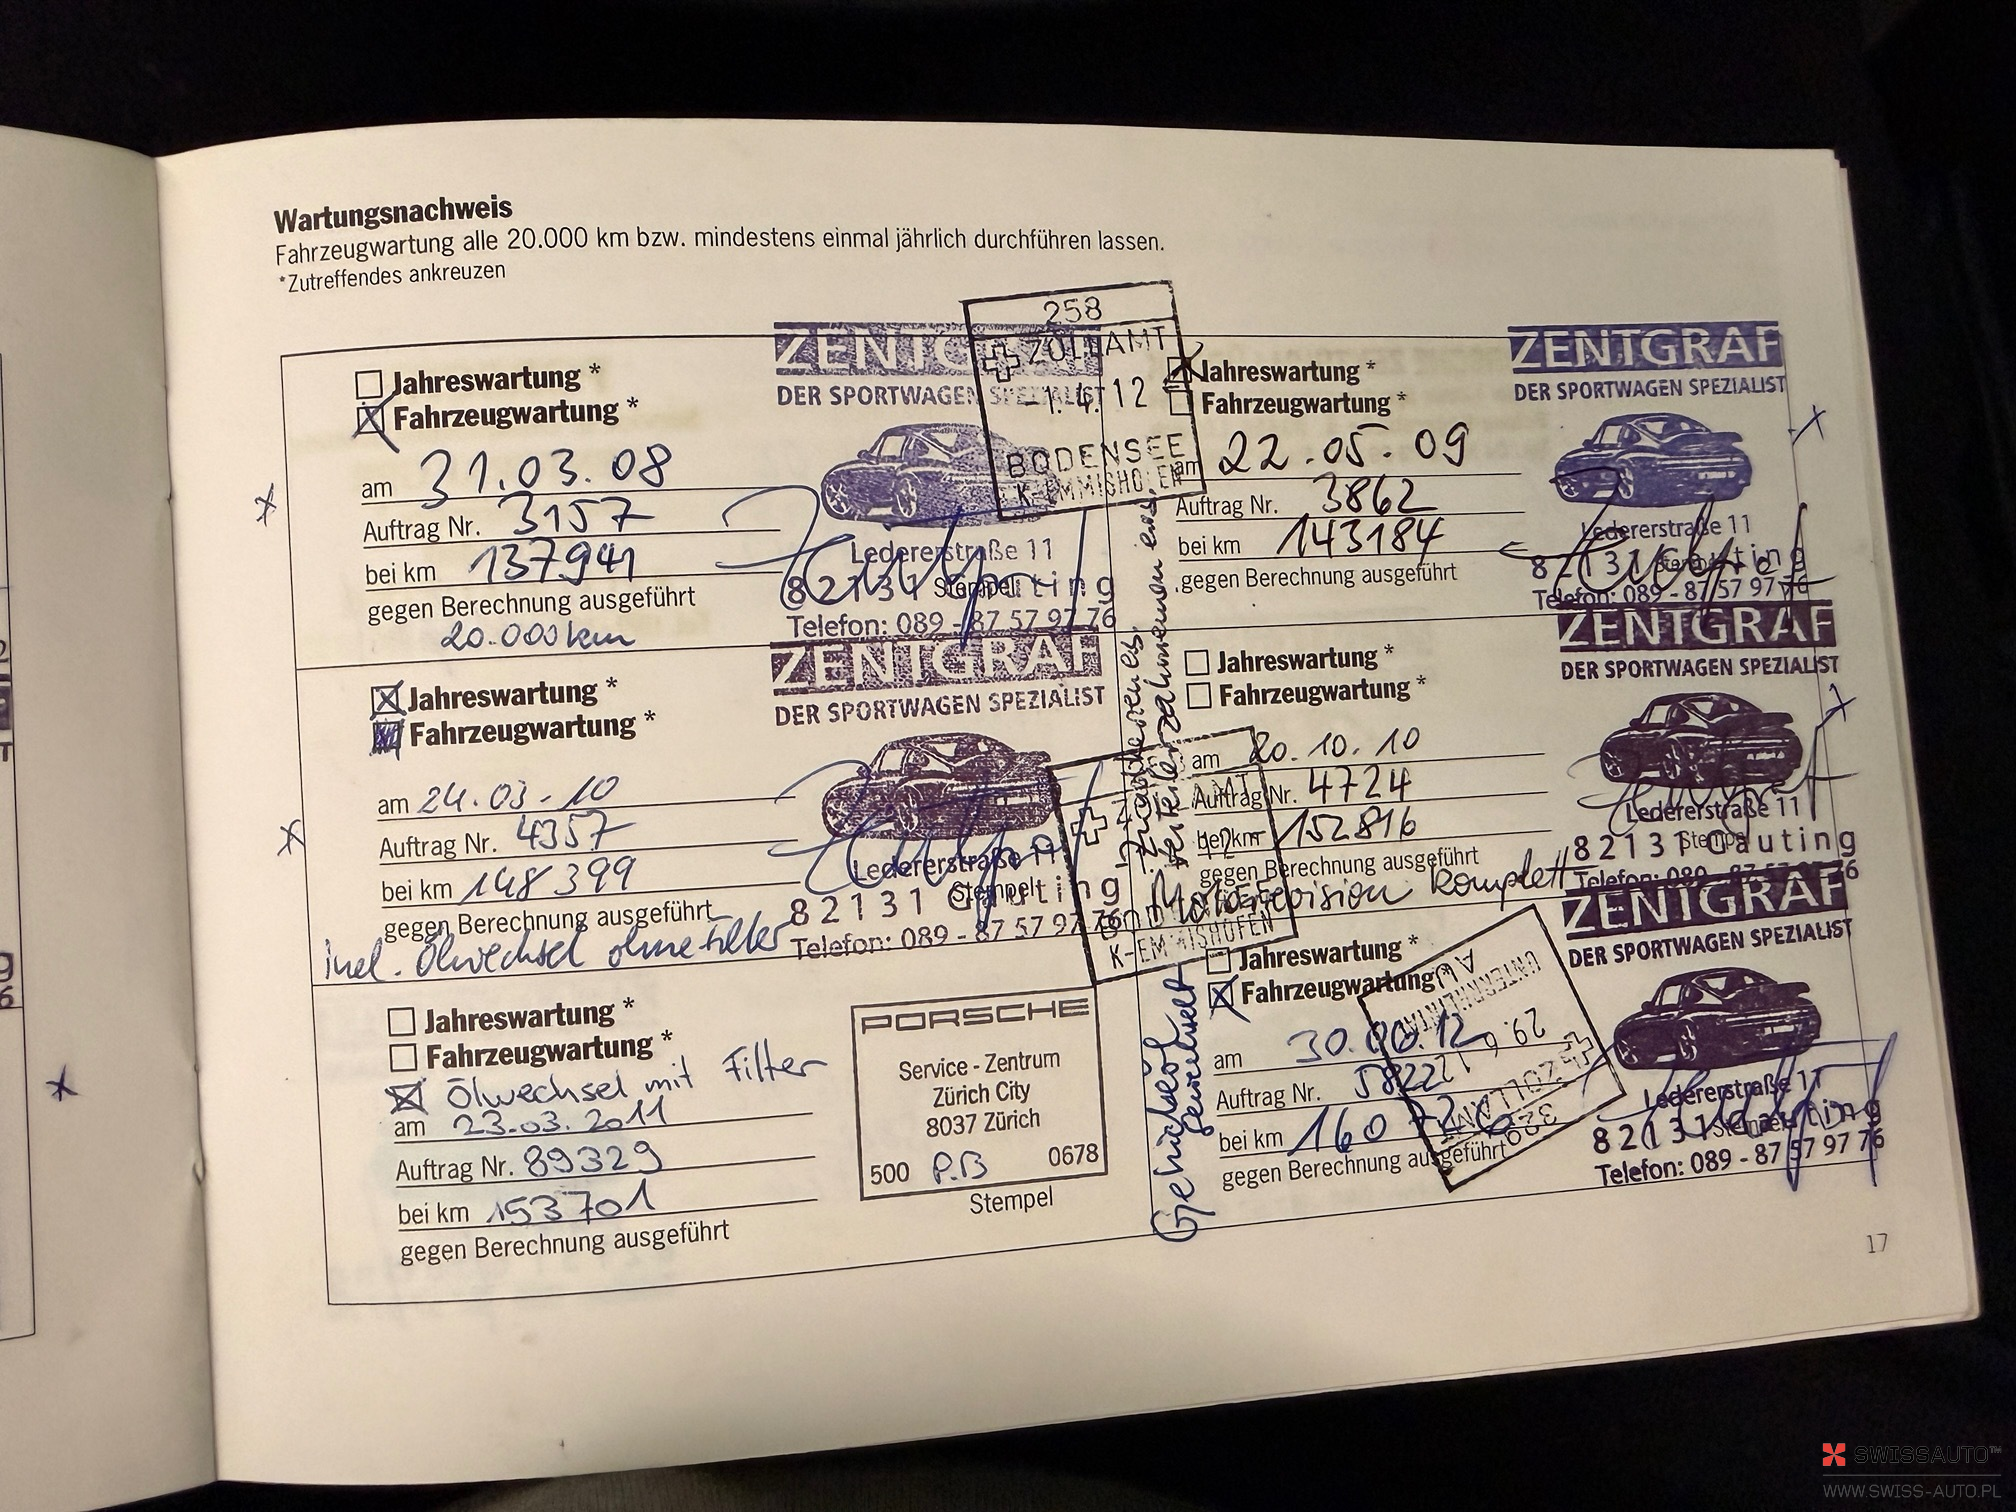 Wartungsnachweis
Fahrzeugwartung alle 20.000 km bzw. mindestens einmal jährlich durchführen lassen.
*Zutreffendes ankreuzen
Jahreswartung *
Fahrzeugwartung *
am 31.03.08
Auftrag Nr. 3157
bei km 137941
gegen Berechnung ausgeführt
20.000 km
ZENTGRAF
DER SPORTWAGEN SPEZIALIST
Ledererstraße 11
82131 Gauting
Stempel
Telefon: 089 - 87 57 97 76
258
ZOLLAMT
-1. 4. 12
BODENSEE
K-EMMISHOFEN
Jahreswartung *
Fahrzeugwartung *
am 22.05.09
Auftrag Nr. 3862
bei km 143184
gegen Berechnung ausgeführt
ZENTGRAF
DER SPORTWAGEN SPEZIALIST
Ledererstraße 11
82131 Gauting
Stempel
Telefon: 089 - 87 57 97 76
Jahreswartung *
Fahrzeugwartung *
am 24.03.10
Auftrag Nr. 4357
bei km 148399
gegen Berechnung ausgeführt
incl. Ölwechsel ohne Filter
ZENTGRAF
DER SPORTWAGEN SPEZIALIST
Ledererstraße 11
Stempel
82131 Gauting
Telefon: 089 - 87 57 97 76
K-EMMISHOFEN
Jahreswartung *
Fahrzeugwartung *
am 20.10.10
Auftrag Nr. 4724
bei km 152816
gegen Berechnung ausgeführt
Motorrevision komplett
ZENTGRAF
DER SPORTWAGEN SPEZIALIST
Ledererstraße 11
Stempel
82131 Gauting
Telefon: 089 - 87 57 97 76
Getriebeöl
gewechselt
Jahreswartung *
Fahrzeugwartung *
Ölwechsel mit Filter
am 23.03.2011
Auftrag Nr. 89329
bei km 153701
gegen Berechnung ausgeführt
PORSCHE
Service - Zentrum
Zürich City
8037 Zürich
500 P.B 0678
Stempel
Jahreswartung *
Fahrzeugwartung *
am
Auftrag Nr. 5822
bei km 160726
gegen Berechnung ausgeführt
329
ZOLLAMT
29. 6. 12
AU
UNTERRHEINTAL
ZENTGRAF
DER SPORTWAGEN SPEZIALIST
Ledererstraße 11
82131 Gauting
Stempel
Telefon: 089 - 87 57 97 76
17
SWISSAUTO™
WWW.SWISS-AUTO.PL